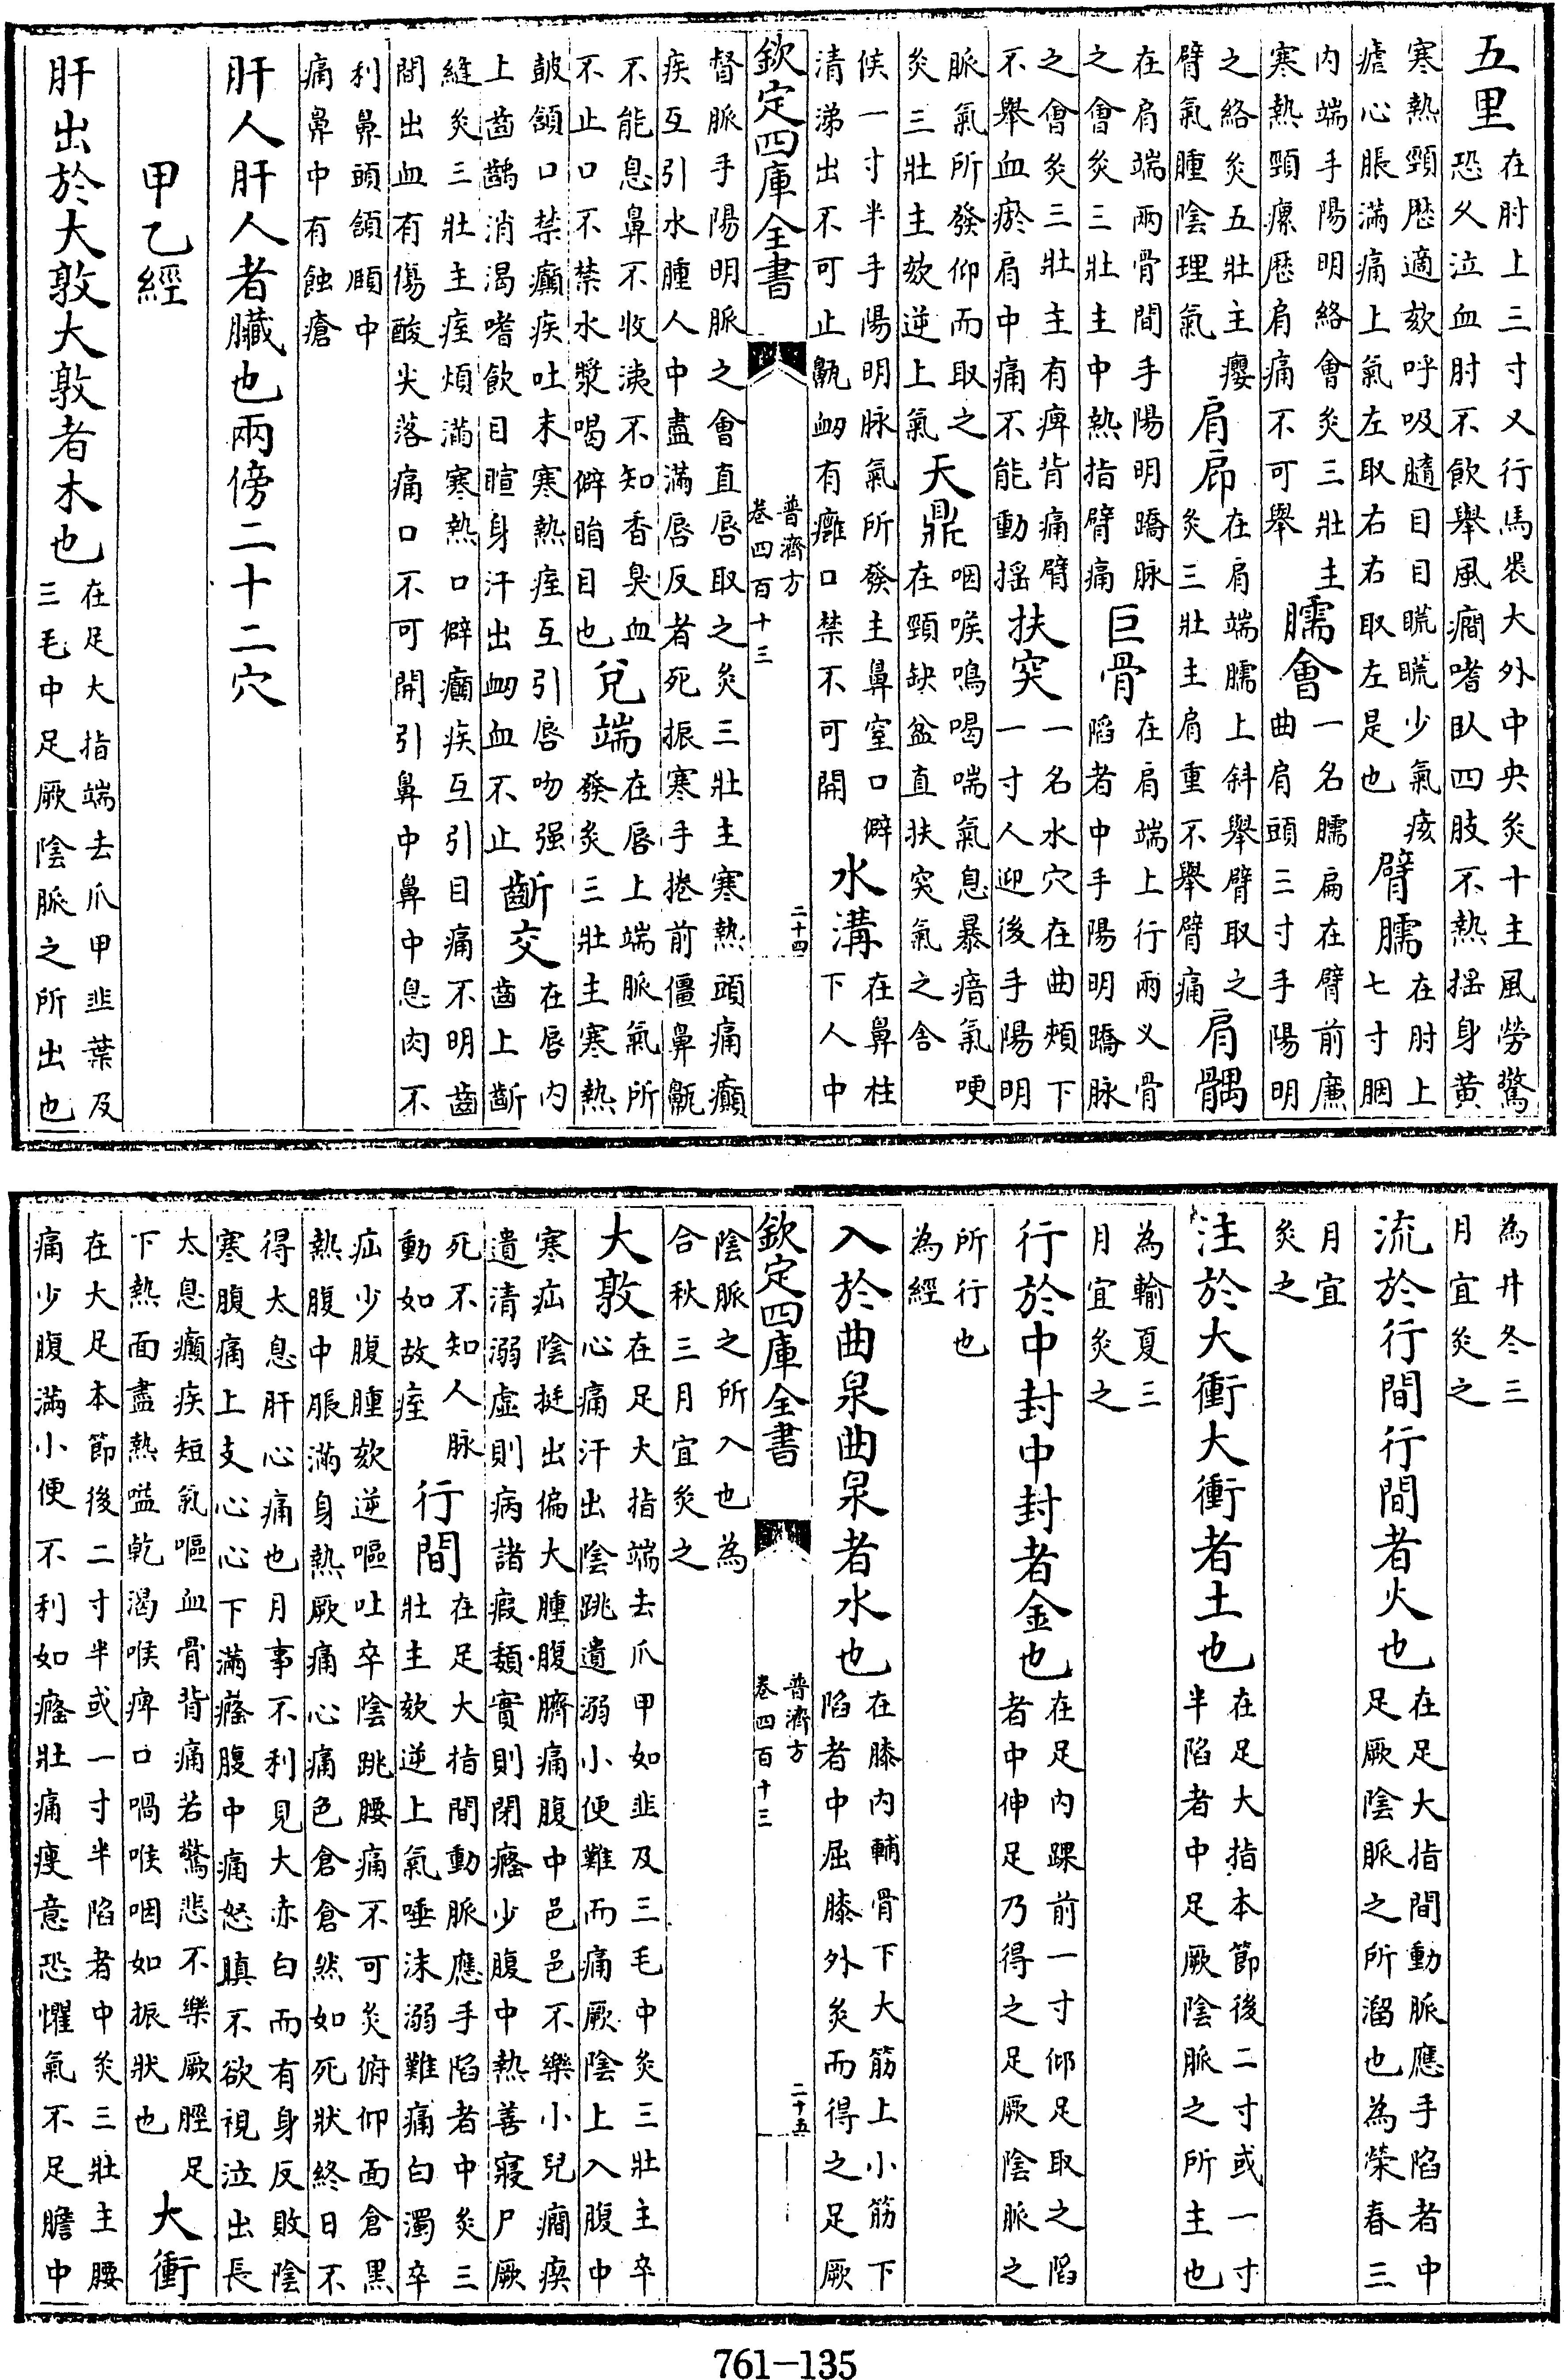 五里 在肘上三寸又行馬裳大外中央灸十主風勞驚
恐久泣血肘不飲舉風癎嗜臥四肢不熱揺身黄
寒熱頸歴適欬呼吸隨目目䀮䀮少氣痎
瘧心脹滿痛上氣左取右右取左是也
臂臑 在肘上
七寸䐃
内端手陽明絡會灸三壯主
寒熱頸瘰歴肩痛不可舉
臑會 一名臑扁在臂前亷
曲肩頭三寸手陽明
之絡灸五壯主癭
臂氣腫陰理氣
肩 在肩端臑上斜舉臂取之
灸三壯主肩重不舉臂痛
肩髃
在肩端兩骨間手陽明蹻脉
之會灸三壯主中熱指臂痛
巨骨 在肩端上行兩义骨
陷者中手陽明蹻脉
之會灸三壯主有痺背痛臂
不舉血瘀肩中痛不能動揺
扶突 一名水穴在曲頰下
一寸人迎後手陽明
脈氣所發仰而取之
灸三壯主欬逆上氣
天鼎 咽喉鳴喝喘氣息暴瘖氣哽
在頸缺盆直扶突氣之舍
候一寸半手陽明脉氣所發主鼻窒口僻
清涕出不可止鼽衂有癰口禁不可開
水溝 在鼻柱
下人中
欽定四庫全書
普濟方
卷四百十三
二十四
督脈手陽明脈之會直唇取之灸三壯主寒熱頭痛癲
疾互引水腫人中盡滿唇反者死振寒手捲前僵鼻鼽
不能息鼻不收洟不知香臭血
不止口不禁水漿喝僻睊目也
兊端 在唇上端脈氣所
發灸三壯主寒熱
皷頷口禁癲疾吐未寒熱痓互引唇吻强
上齒齲消渴嗜飲目暄身汗出衂血不止
齗交 在唇内
齒上齗
縫灸三壯主痓煩滿寒熱口僻癲疾互引目痛不明齒
間出血有傷酸尖落痛口不可開引鼻中鼻中息肉不
利鼻頭頷頥中
痛鼻中有蝕瘡
肝人肝人者臟也兩傍二十二穴
甲乙經
肝出於大敦大敦者木也 在足大指端去爪甲韭葉及
三毛中足厥陰脈之所出也
為井冬三
月宜灸之
流於行間行間者火也 在足大指間動脈應手陷者中
足厥陰脈之所溜也為滎春三
月宜
灸之
注於大衝大衝者土也 在足大指本節後二寸或一寸
半陷者中足厥陰脈之所主也
為輸夏三
月宜灸之
行於中封中封者金也 在足内踝前一寸仰足取之陷
者中伸足乃得之足厥陰脈之
所行也
為經
入於曲泉曲泉者水也 在膝内輔骨下大筋上小筋下
陷者中屈膝外灸而得之足厥
陰脈之所入也為
合秋三月宜灸之
欽定四庫全書
普濟方
卷四百十三
二十五
大敦 在足大指端去爪甲如韭及三毛中灸三壯主卒
心痛汗出陰跳遺溺小便難而痛厥陰上入腹中
寒疝陰挺出偏大腫腹臍痛腹中邑邑不樂小兒癎瘈
遺清溺虚則病諸瘕頽實則閉癃少腹中熱善寢尸厥
死不知人脉
動如故痓
行間 在足大指間動脈應手陷者中灸三
壯主欬逆上氣唾沫溺難痛白濁卒
疝少腹腫欬逆嘔吐卒陰跳腰痛不可灸俯仰面倉黑
熱腹中脹滿身熱厥痛心痛色倉倉然如死狀終日不
得太息肝心痛也月事不利見大赤白而有身反敗陰
寒腹痛上支心心下滿癃腹中痛怒瞋不欲視泣出長
太息癲疾短氣嘔血骨背痛若驚悲不樂厥脛足
下熱面盡熱嗌乾渴喉痺口喎喉咽如振狀也
大衝
在大足本節後二寸半或一寸半陷者中灸三壯主腰
痛少腹滿小便不利如癃壯痛痩意恐懼氣不足膽中
761-135